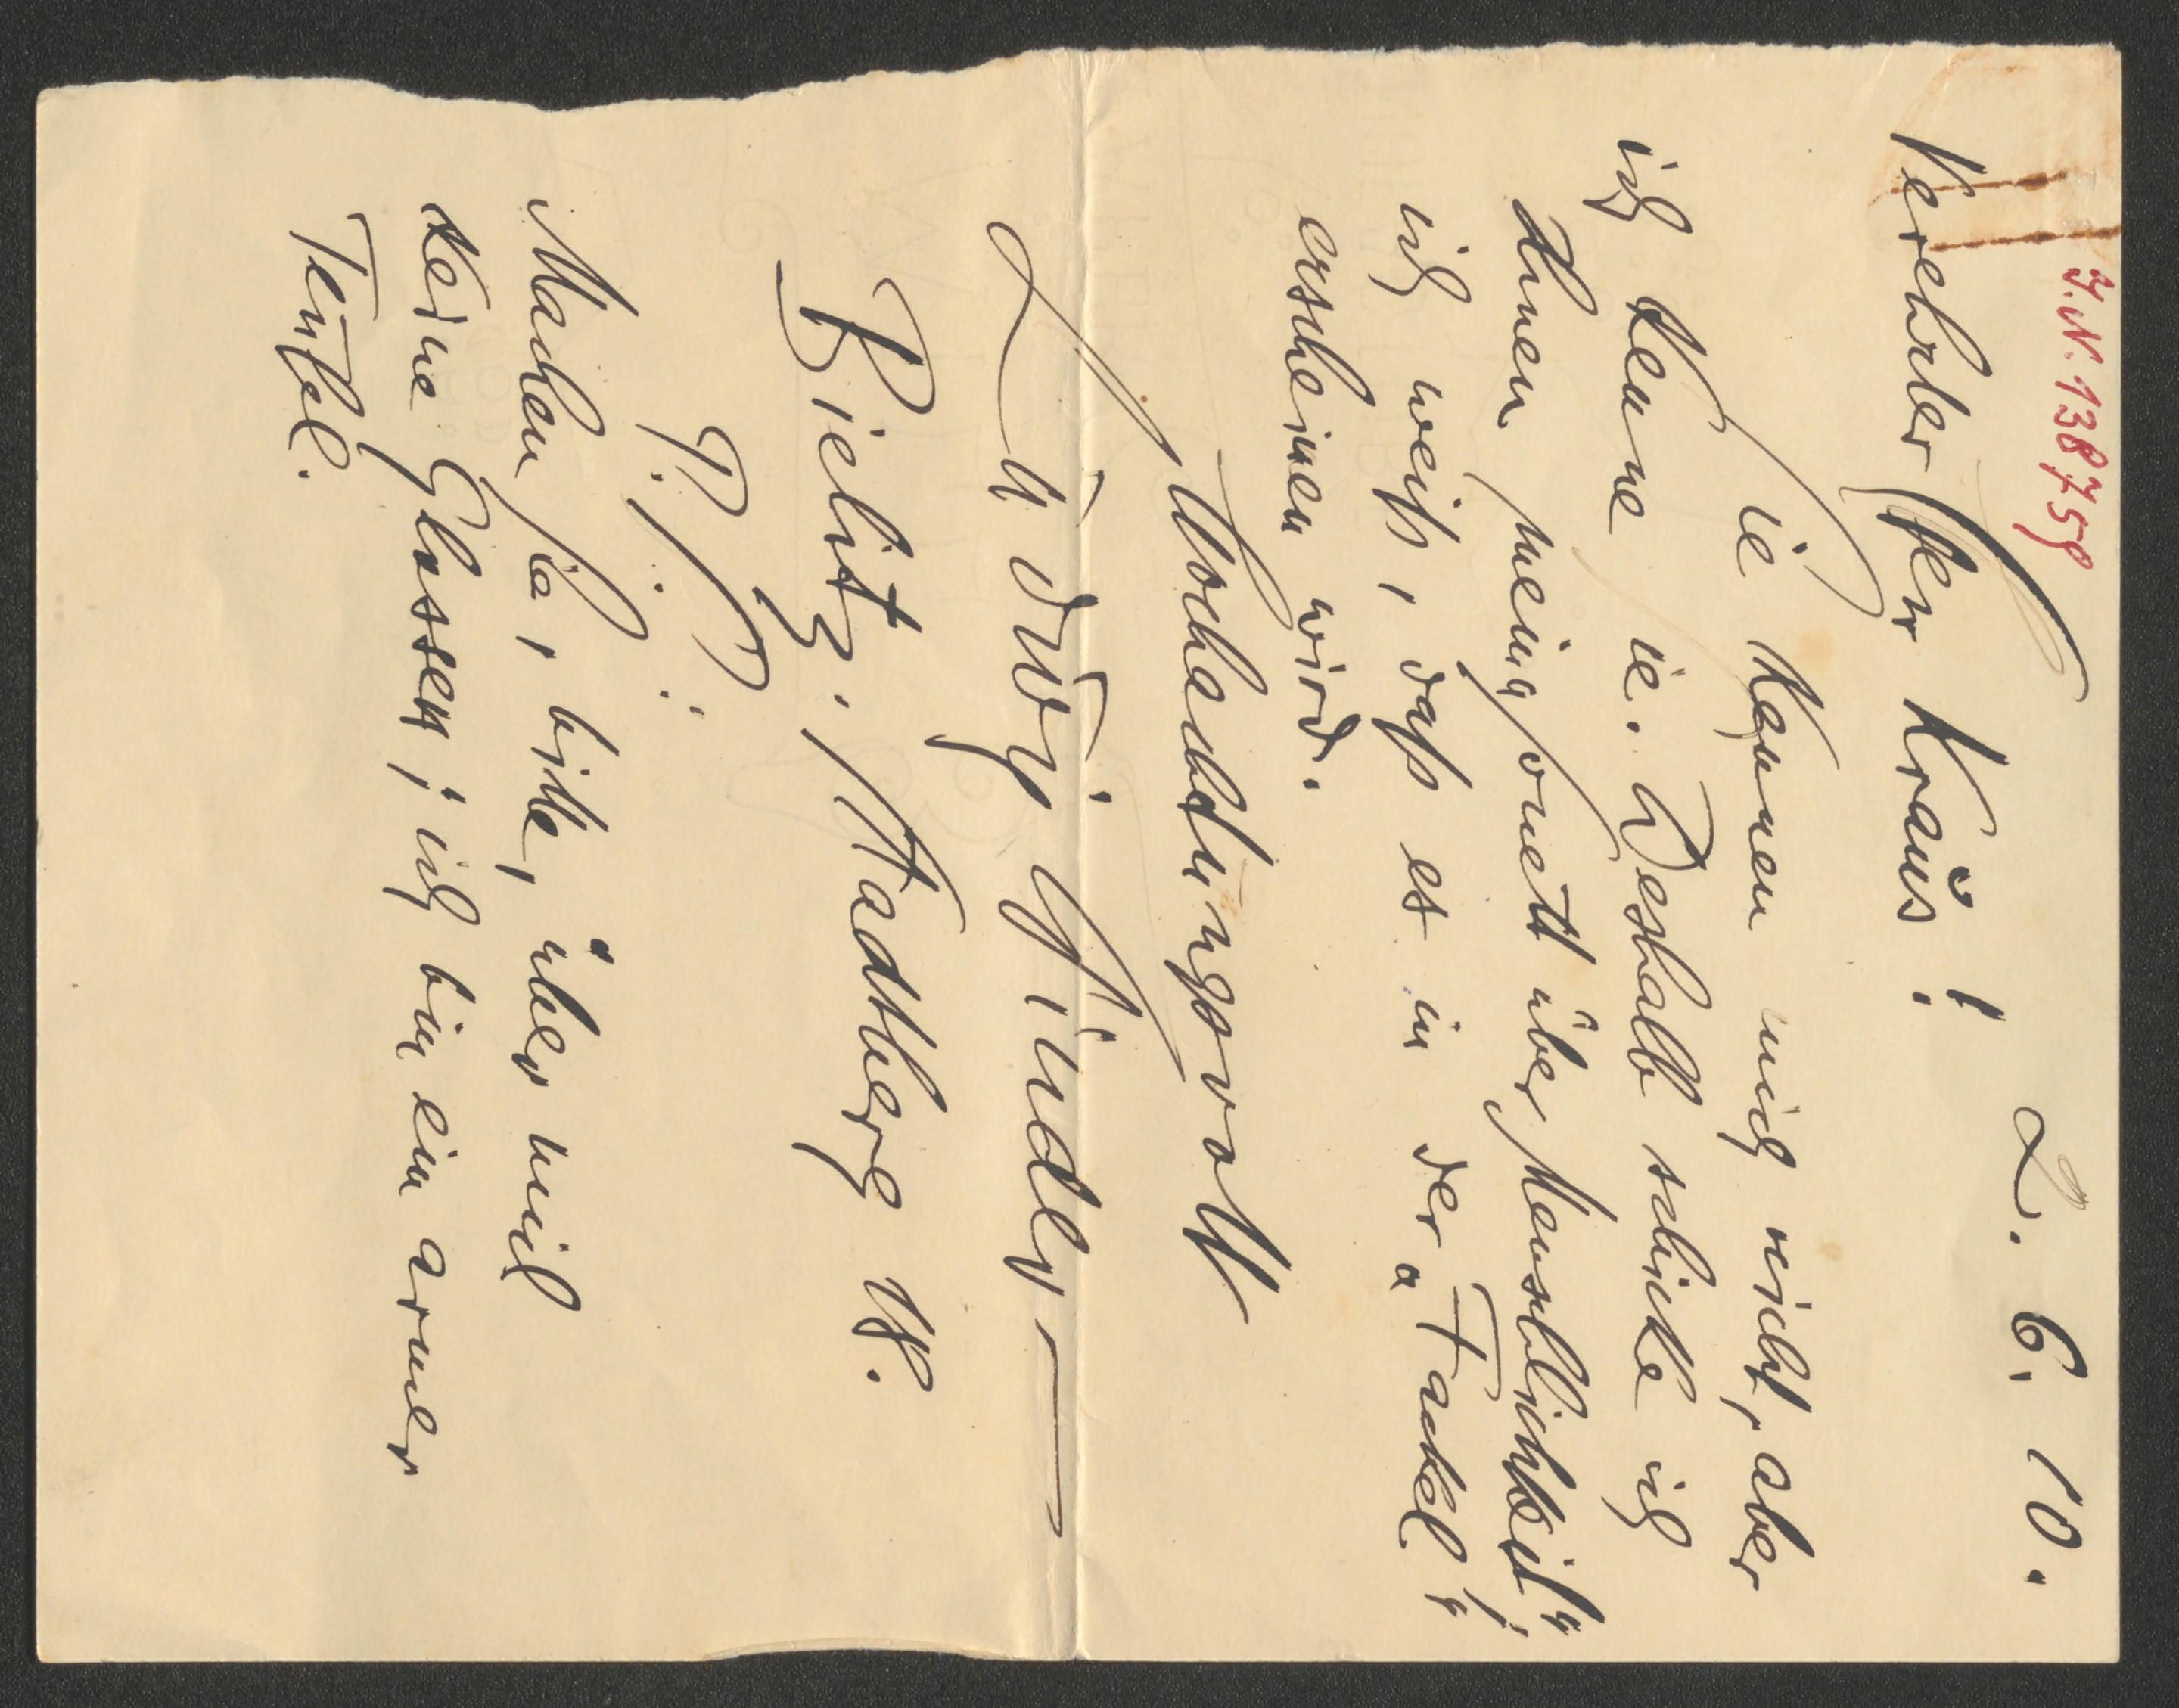 J.N. 138759
2. 6. 10.
Verehrter Herr Kraus!
Sie kennen mich nicht, aber
ich kenne Sie. Deshalb schicke ich
Ihnen mein Sonett über „Menschlichkeit“;
ich weiß, daß es in der „Fackel“
erscheinen wird.
Hochachtungsvoll
Ludwig
Bielitz, Stadtberg 18.
P. S.:
Machen Sie, bitte, über mich
keine Glossen; ich bin ein armer
Teufel.